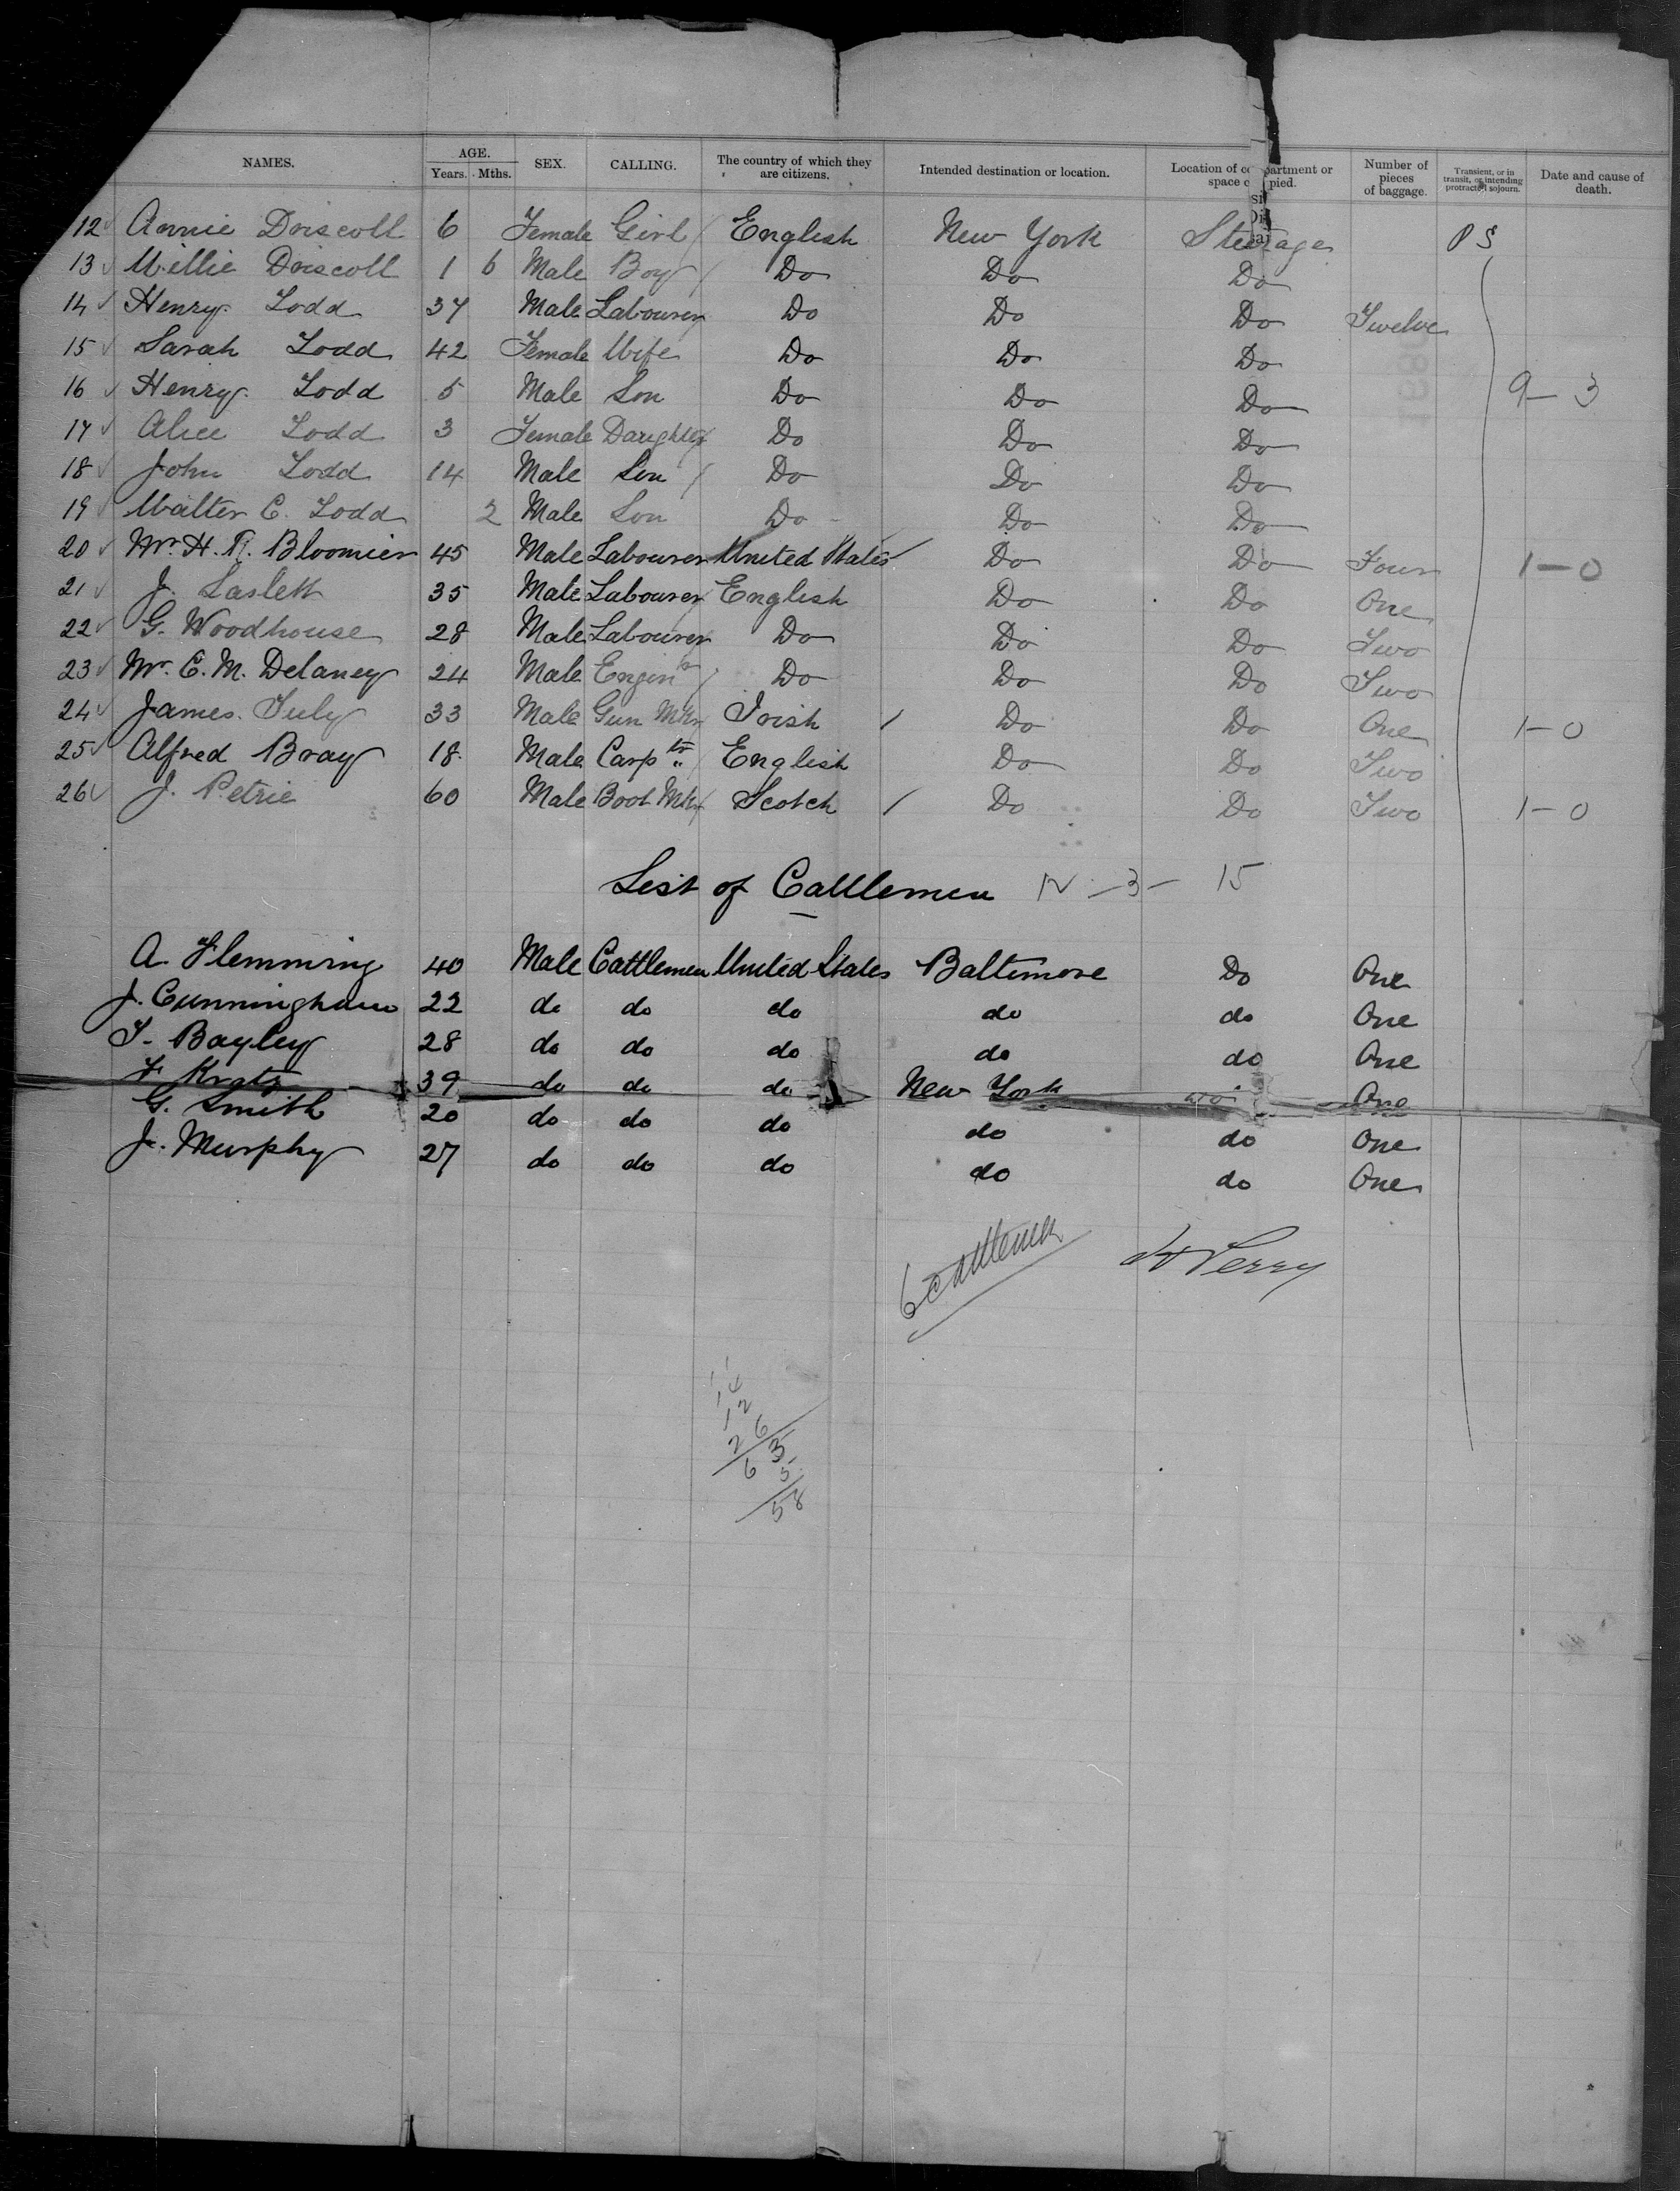 NAMES. AGE. Years. Mths. SEX. CALLING. The country of which they are citizens. Intended destination or location. Location of co partment or space o pied. Number of pieces of baggage. Transient, or in transit, or intending protracted sojourn. Date and cause of death.
12 Annie Driscoll 6 Female Girl English New York Steerage P S
13 Willie Driscoll 1 6 Male Boy Do Do Do
14 Henry Todd 37 Male Labourer Do Do Do Twelve
15 Sarah Todd 42 Female Wife Do Do Do
16 Henry Todd 5 Male Son Do Do Do 9-3
17 Alice Todd 3 Female Daughter Do Do Do
18 John Todd 14 Male Son Do Do Do
19 Walter C. Todd 2 Male Son Do Do Do
20 Mr. H. R. Bloomier 45 Male Labourer United States Do Do Four 1-0
21 J. Laslett 35 Male Labourer English Do Do One
22 G. Woodhouse 28 Male Labourer Do Do Do Two
23 Mr. C. M. Delaney 24 Male Engin Do Do Do Two
24 James Tuly 33 Male Gun Mkr Irish Do Do One 1-0
25 Alfred Bray 18 Male Carptr English Do Do Two
26 J. Petrie 60 Male Boot Mkr Scotch Do Do Two 1-0
List of Cattlemen N-3-15
A. Flemming 40 Male Cattlemen United States Baltimore Do One
J. Cunningham 22 do do do do do One
T. Bayley 28 do do do do do One
F Kratz 39 do do do New York do One
G. Smith 20 do do do do do One
J. Murphy 27 do do do do do One
6 cattlemen
Perry
14
12
26
6 3
5
58